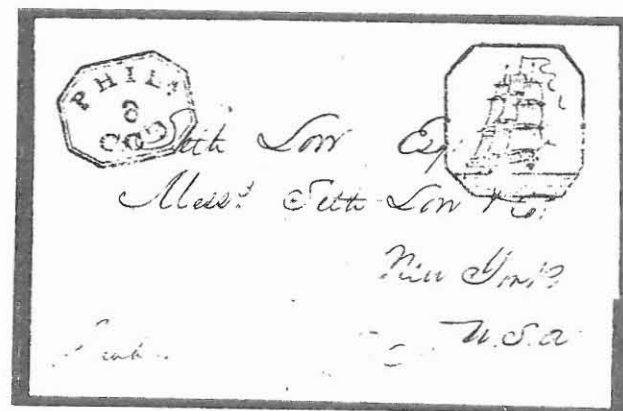 PHILA
6
Seth Low Esq
Messrs Seth Low & Co.
New York
U.S.A